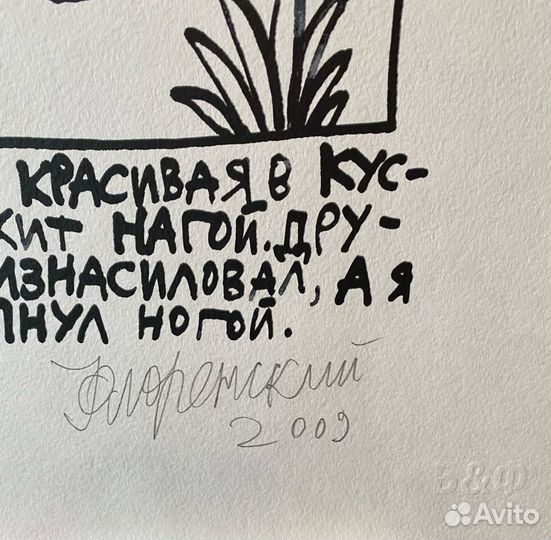 КРАСИВАЯ В КУС-
ЖИТ НАГОЙ. ДРУ-
ИЗНАСИЛОВАЛ, А Я
ПНУЛ НОГОЙ.
Флоренский
2009
Б&Ф
Avito